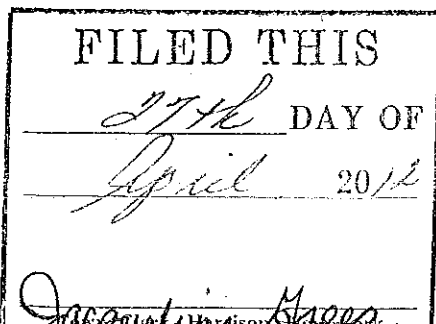 FILED THIS
27th DAY OF
April 2012